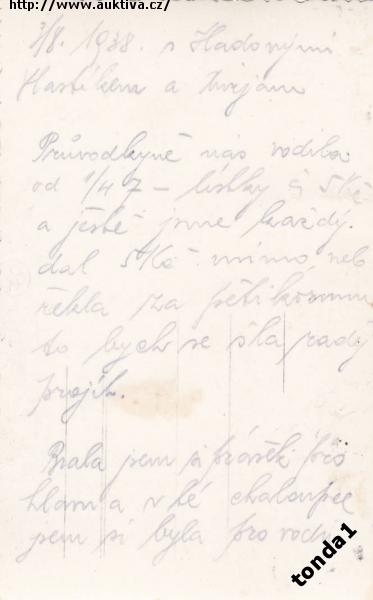 http://www.auktiva.cz/
7/8. 1938. s Hadovými
Hastíkem a
Průvodkyně nás vodila
od 1/4 7 – lístky à 5 Kč
a ještě jsme každý
dal 5 Kč mimo neb
řekla za pětikorunu
to bych se šla rady
projít.
Brala jsem si prášek pro
hlavu a v té chaloupce
jsem si byla pro vodu
tonda1